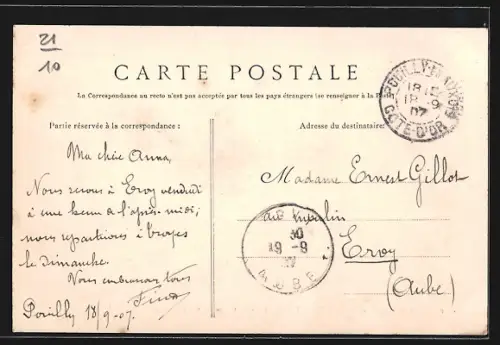 21
10
CARTE POSTALE
La Correspondance au recto n'est pas acceptée par tous les pays étrangers (se renseigner à la Poste)
Partie réservée à la correspondance :
Adresse du destinataire
POUILLY-EN-AUXOIS
18 15
18 -9
07
COTE-D'OR
Ma chère Anna,
Nous serons à Ervy vendredi
à une heure de l'après-midi;
nous repartirons à Troyes
le dimanche.
Nous embrassons tous
Pouilly 18/9-07.
Madame Ernest Gillot
au Moulin
Ervy
(Aube)
30
19 -9
07
AUBE